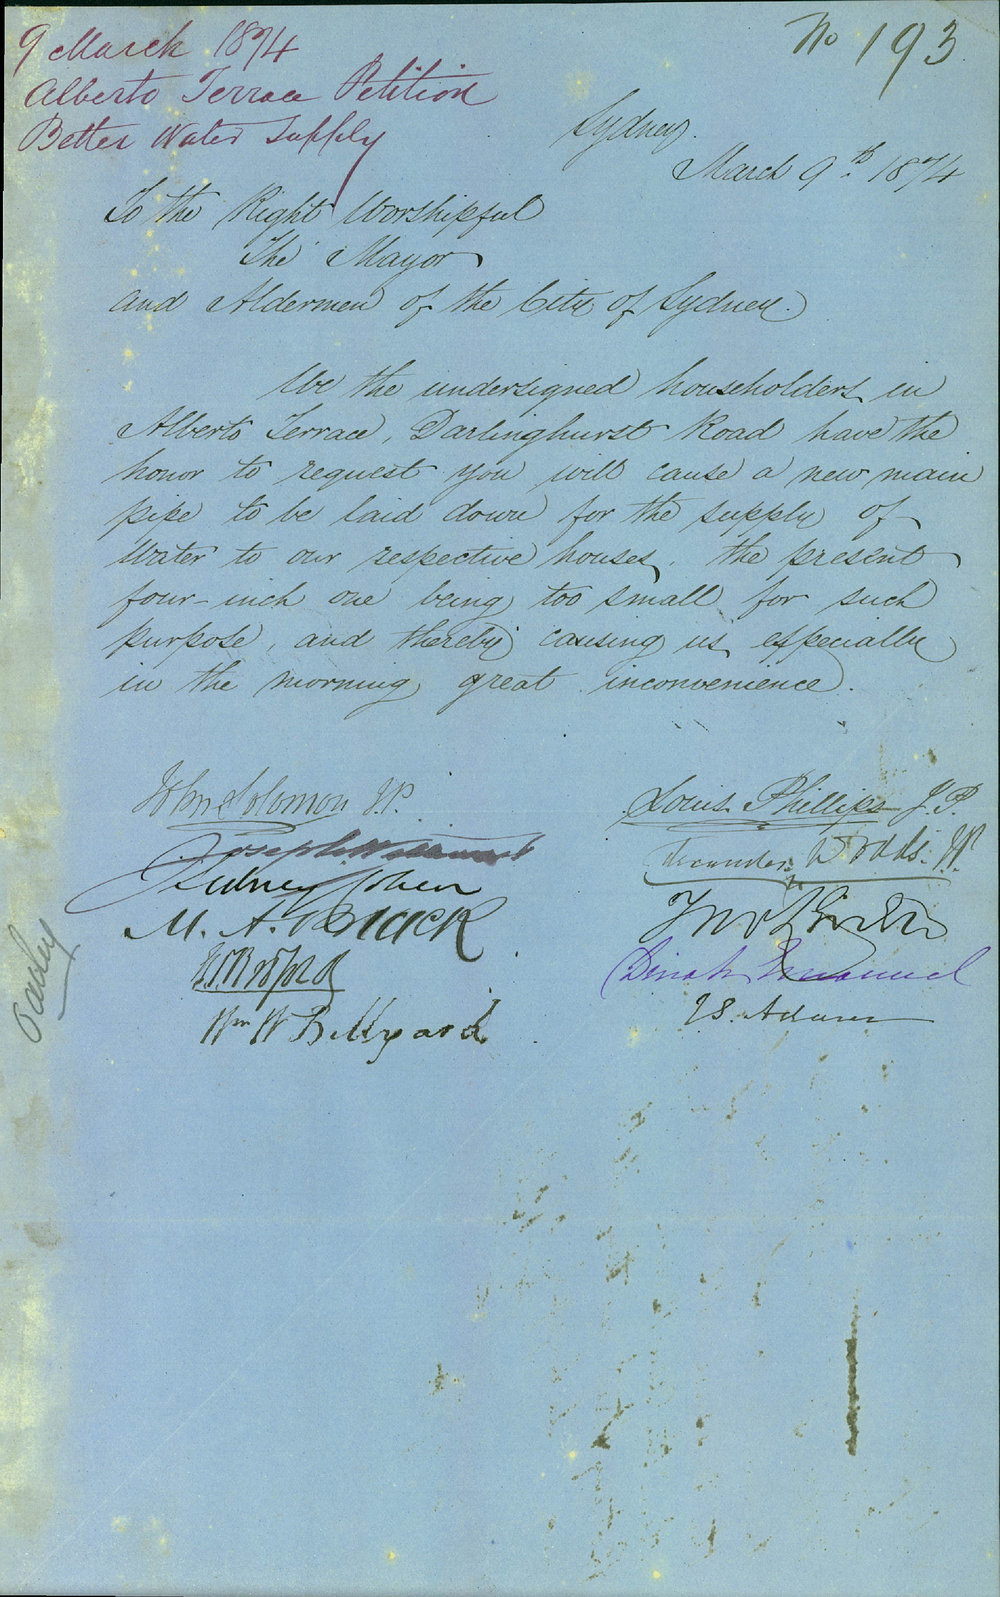 9 March 1874
Alberto Terrace Petition
Better Water Supply
No 193
Sydney.
March 9th 1874
To the Right Worshipful
The Mayor
and Aldermen of the City of Sydney.
We the undersigned householders in
Alberto Terrace, Darlinghurst Road have the
honor to request you will cause a new main
pipe to be laid down for the supply of
Water to our respective houses, the present
four-inch one being too small for such
purpose, and thereby causing us especially
in the morning great inconvenience.
John Solomon J.P.
Louis Phillips J.P.
Joseph
Woods. JP
Sidney Cohen
M. A. Black
Dinah Emanuel
Wm W Billyard
Adams